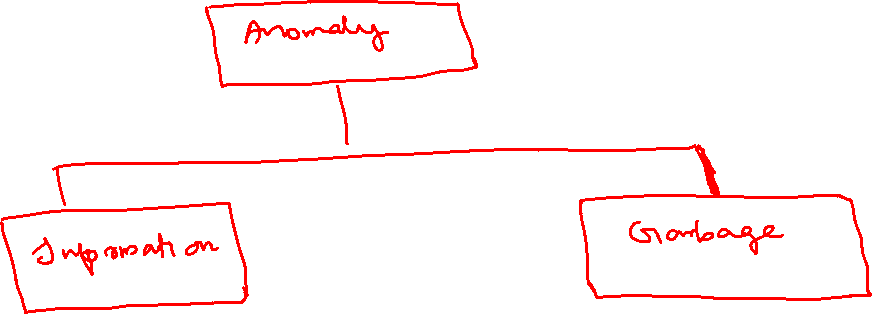 Anomaly
Information
Garbage